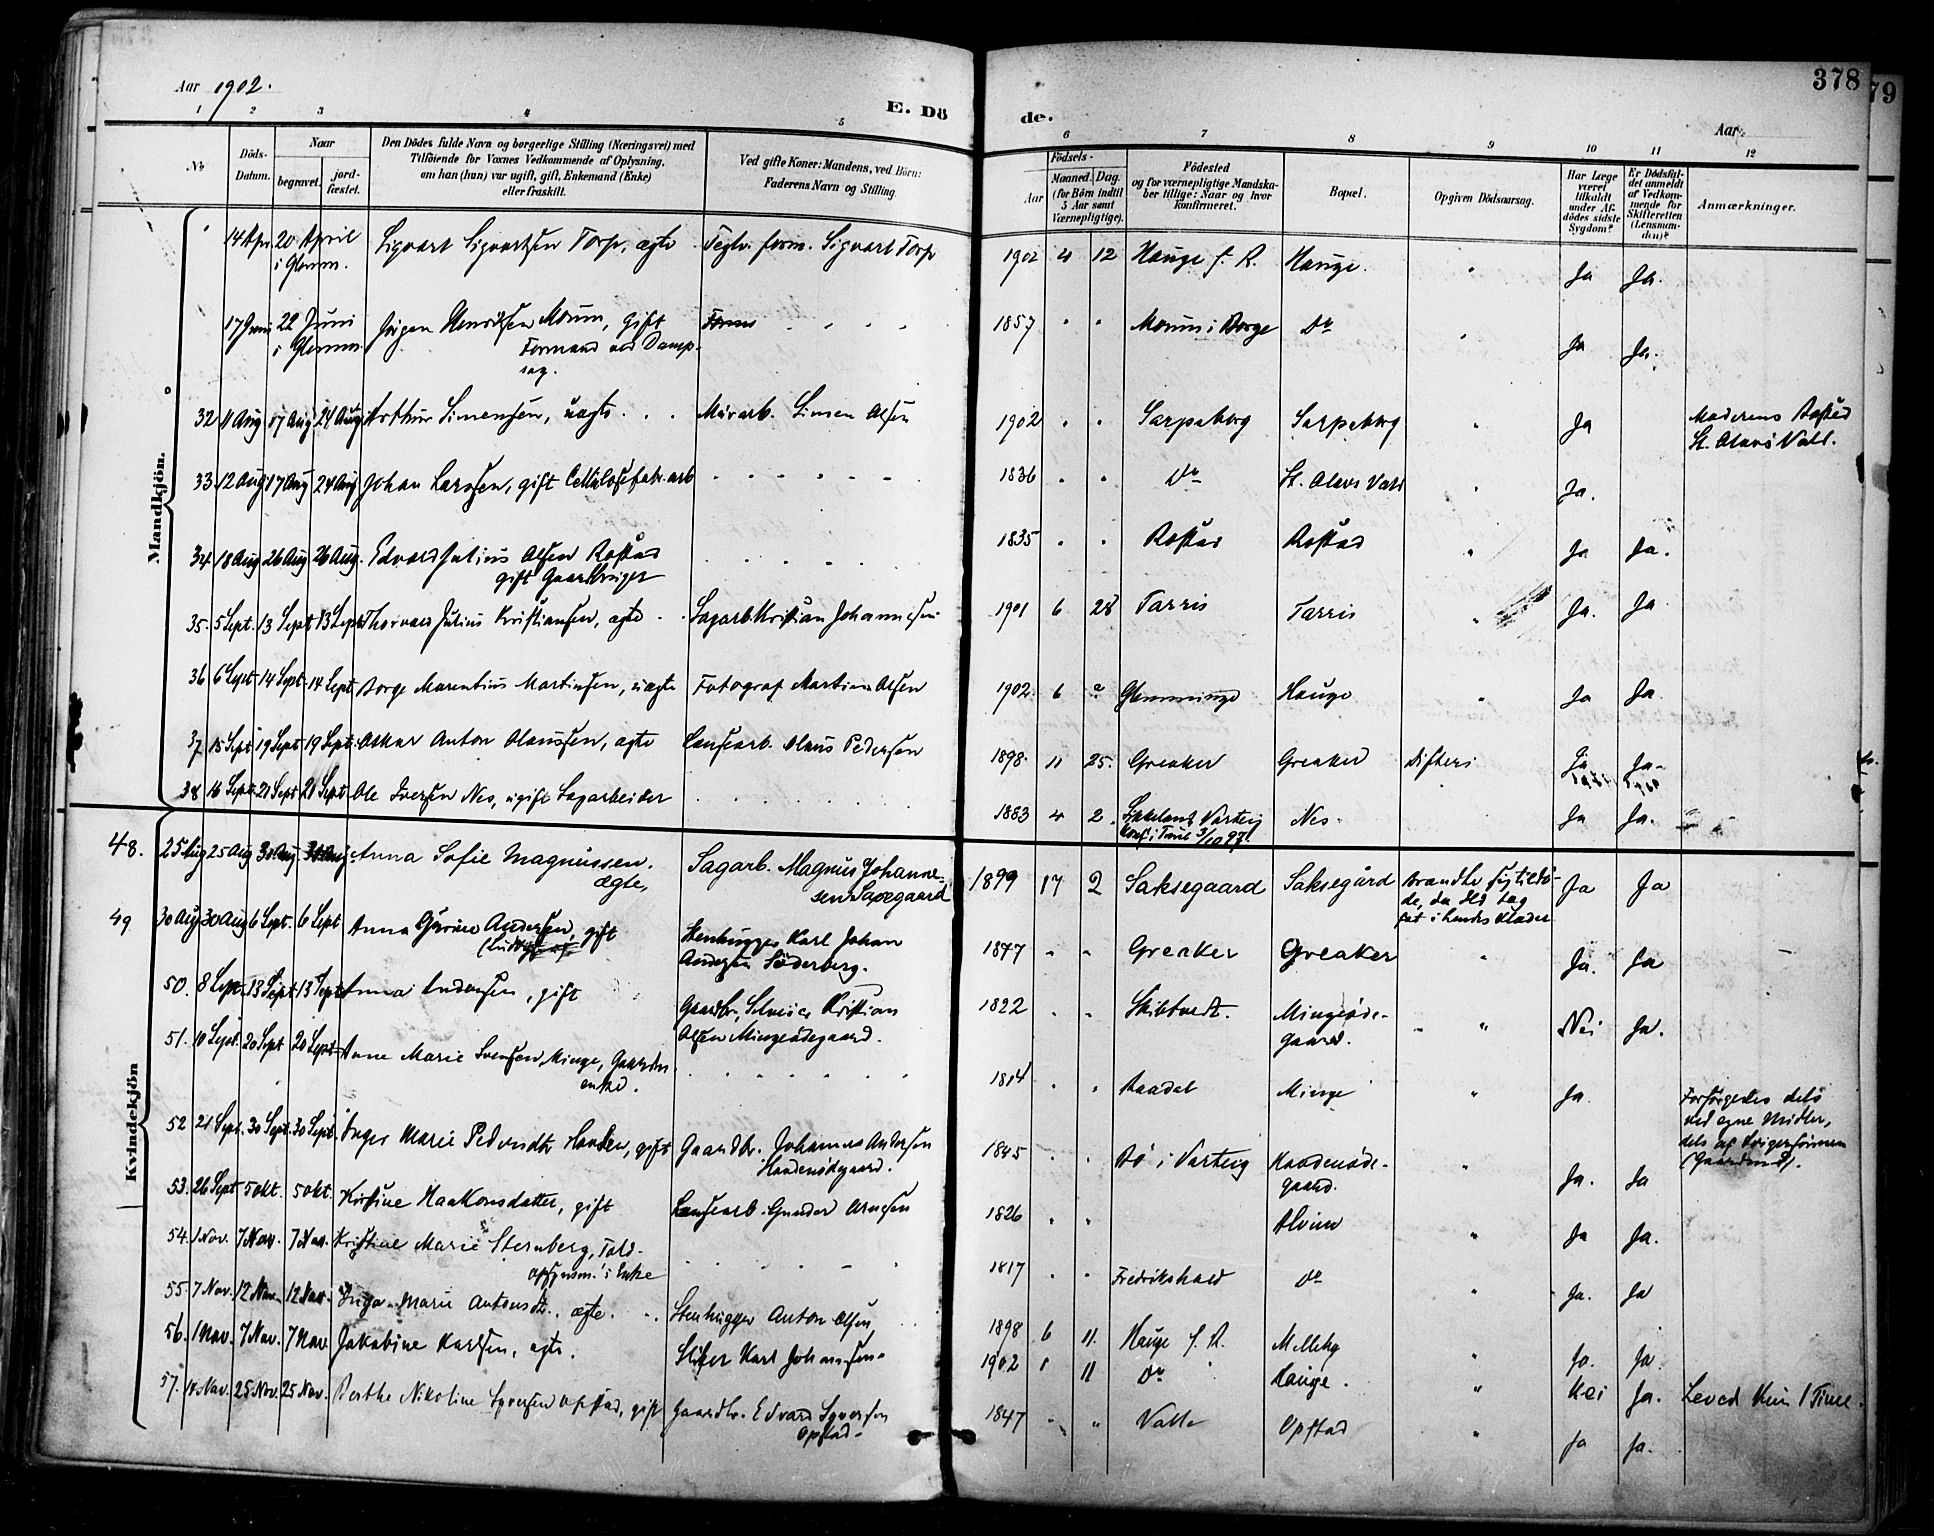 Aar 1902.
E. Dö
de.
378
79
Aar
1 2 3 4 5 6 7 8 9 10 11 12
No
Döds-Datum.
Naar
begravet.
jord-fæstet.
Den Dödes fulde Navn og borgerlige Stilling (Næringsvei) med
Tilföiende for Voxnes Vedkommende af Oplysning,
om han (hun) var ugift, gift, Enkemand (Enke)
eller fraskilt.
Ved gifte Koner: Mandens, ved Börn:
Faderens Navn og Stilling.
Födsels-
Aar
Maaned. Dag.
(for Börn indtil
5 Aar samt
Værnepligtige).
Födested
og for værnepligtige Mandska-
ber tillige: Naar og hvor
konfirmeret.
Bopæl.
Opgiven Dödsaarsag.
Har Læge
været
tilkaldt
under Af-
dödes sidste
Sygdom?
Er Dödsfal-
det anmeldt
af Vedkom-
mende for
Skifteretten
(Lensman-
den)?
Anmærkninger.
Mandkjön.
14 Apr 20 April Sigvart Sigvartsen Torp, ægte Teglv. form. Sigvart Torp 1902 4 12 Hauge f. R. Hauge. " Ja Ja.
i Glemm.
17 Juni 22 Juni Jörgen Henriksen Moum, gift 1857 " " Moum i Borge Do " Ja Ja.
i Glemm. Formand ved Damp-
sag.
32 11 Aug 17 Aug 24 Aug Arthur Simensen, uægte Murarb. Simen Olsen 1902 " " Sarpsborg Sarpsborg " Ja Moderens Bosted
St. Olavs Vold.
33. 12 Aug 17 Aug 24 Aug Johan Larssen, gift Cellulosefabr. arb 1836 " " Do St. Olavs Vold " Ja.
34. 18 Aug 26 Aug 26 Aug. Edvard Julius Olsen Rostad 1835 " " Rostad Rostad " Ja Ja.
gift Gaardbruger
35. 5 Sept. 13 Sept 13 Sept Thorvald Julius Kristiansen, ægte Sagarb. Kristian Johannesen 1901 6 28 Tarris Tarris " Ja. Ja
36 6 Sept 14 Sept 14 Sept. Borge Marentius Martinsen, uægte Fotograf Martin Olsen 1902. 6 Glemminge Hauge " Ja Ja.
37 15 Sept 19 Sept 19 Sept. Oskar Anton Olaussen, ægte Lensearb. Olaus Pedersen 1898. 11 25. Greaker Greaker Difteri Ja Ja.
38 16 Sept 21 Sept 21 Sept Ole Iversen Nes, ugift Sagarbeider 1883 4 2. Varteig Nes. Ja Ja.
konf. i Tune 3/10 97.
Kvindekjön
48. 25 Aug 25 Aug 30 Aug Anna Sofie Magnussen. Sagarb. Magnus Johanne- 1899 17 2 Saksegaard Saksegård Brandte sig tildö- Ja Ja
ægte, sen Saxegaard de, da Ild tog
fat i hendes Klæder
49 30 Aug 30 Aug 6 Sept. 6 Sept Anna Andersen, gift Stenhugger Karl Johan 1877 " " Greaker Greaker " Ja. Ja
Andersen Söderberg.
50. 8 Sept. 13 Sept 13 Sept Anna Andersen, gift Gaardbr., Selveier Kristian 1822 " " Skibtvedt. Mingeöde- " Nei Ja.
Olsen Mingeödegaard. gaard.
51. 10 Sept. 20 Sept 20 Sept Anne Marie Svensen, Minge, Gaardm. 1814 " " Raade Minge " Ja. Forsörgedes dels
enke. ved egne Midler,
dels af Svigersönnen
(Gaardmd).
52 21 Sept. 30 Sept. 30 Sept. Inger Marie Pedersdtr Haaden, gift Gaardbr. Johannes Andersen 1845 " " Bö i Varteig Haadenöde- " Ja. Ja
Haadenödegaard. gaard.
53. 26 Sept 5 Okt. 5 Okt. Kirstine Haakonsdatter, gift Lensearb. Gunder Arnesen 1826 " " Alvim " Ja Ja.
54. 1 Nov. 7 Nov. 7 Nov. Kristine Marie Sternberg, Told- 1817 " " Fredrikshald Do " Ja. Ja
opsynsm.'s Enke
55. 7 Nov. 12 Nov. 12 Nov. Inga Marie Antonsdtr., ægte. Stenhugger Anton Olsen 1898 6 11. Hauge f. R. Mellehg " Ja. Ja.
56. 1 Nov. 7 Nov. 7 Nov. Jakobine Karlsen, ægte. Sliber Karl Johansen. 1902 11 Do Hauge. " Nei Ja. Leved kun 1 Time.
57. 14 Nov. 25 Nov. 25 Nov. Berthe Nikoline Syversen Opstad, gift Gaardbr. Edvard Syversen 1847 " " Valle Opstad " Ja Ja.
Opstad.